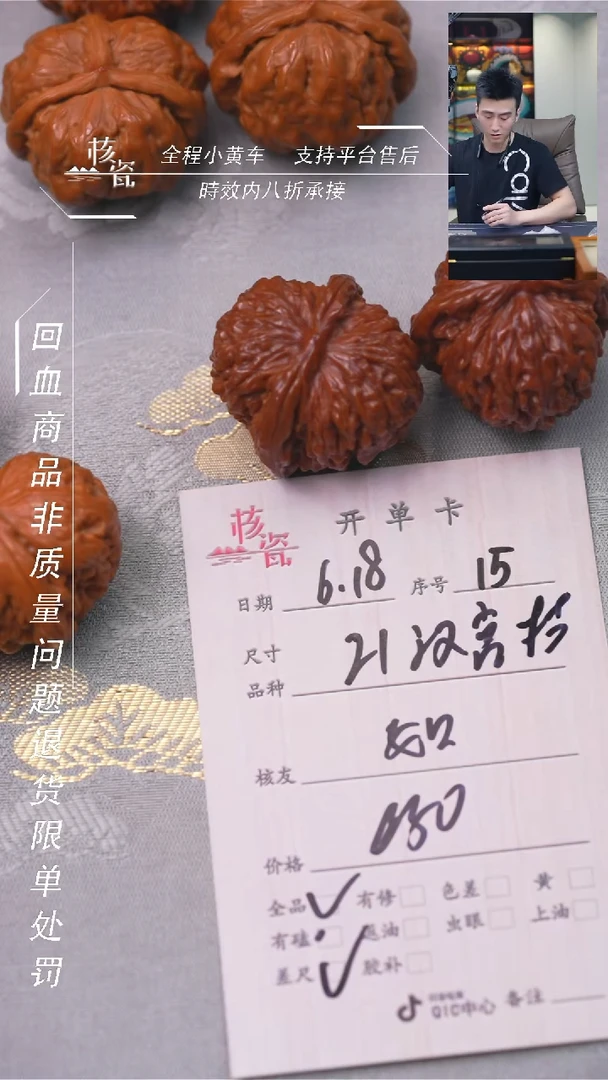 核瓷
全程小黄车 支持平台售后
時效内八折承接
回血商品非质量问题退货限单处罚
核瓷
开单卡
日期 6.18 序号 15
尺寸 21
品种
核友
价格
全品 有修 色差 黄
有磕 出眼 上油
差尺 胶补
QIC中心 备注